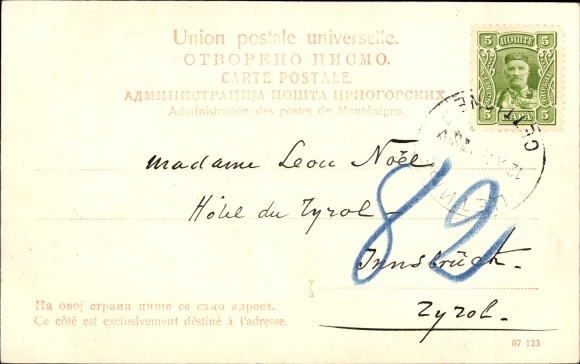 Union postale universelle.
ОТВОРЕНО ПИСМО.
CARTE POSTALE.
АДМИНИСТРАЦИЈА ПОШТА ЦРНОГОРСКИХ.
Administration des postes de Monténégro.
5 ПОШТЕ 5
5 ПАРА 5
Madame Leon Noël
Hôtel du Tyrol -
Innsbrück.
Tyrol.
82
На овој страни пише се само адреса.
Ce côté est exclusivement déstiné à l'adresse.
07 123